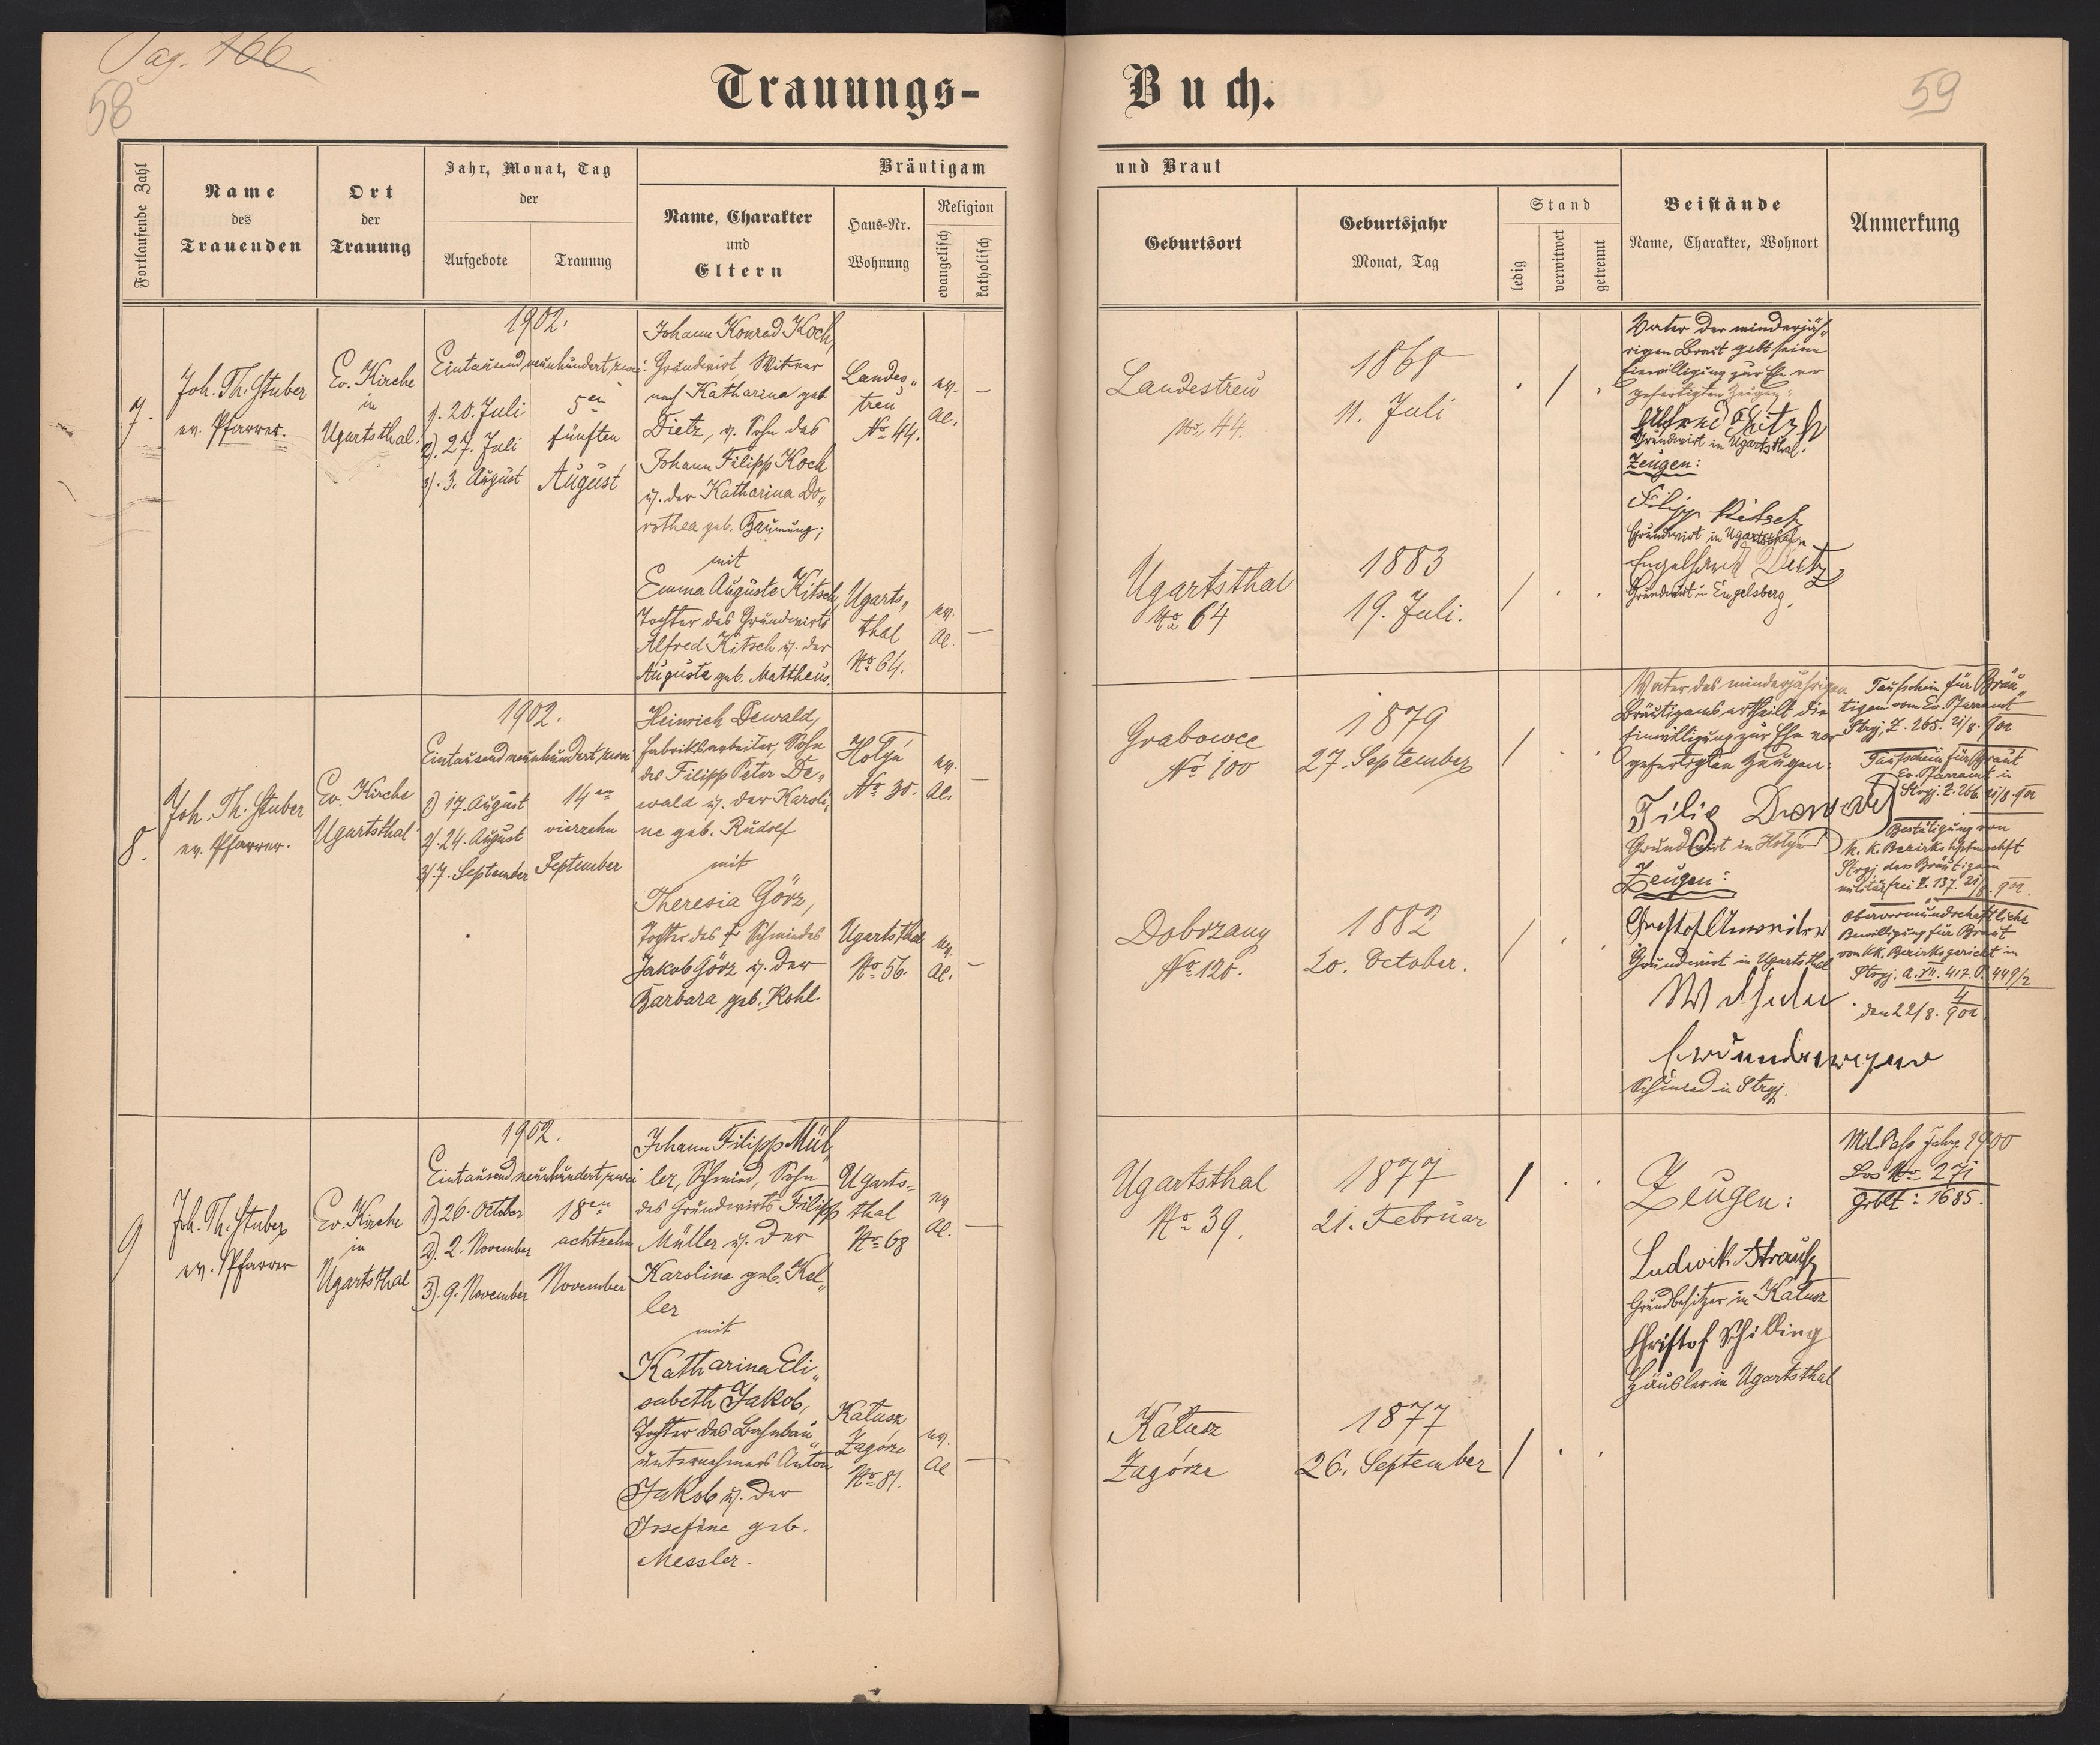 Pag. 166
58
Trauungs-
Fortlaufende Zahl
Name
des
Trauenden
Ort
der
Trauung
Jahr, Monat, Tag
der
Aufgebote
Trauung
Bräutigam
Name, Charakter
und
Eltern
Haus-Nr.
Wohnung
Religion
evangelisch
katholisch
7.
Joh. Th. Stuber
ev. Pfarrer.
Ev. Kirche
in
Ugartsthal.
1902.
Eintausend neunhundert zwei
1). 20. Juli
2). 27. Juli
3). 3. August
5en
fünften
August
Johann Konrad Koch,
Grundwirt, Witwer
nach Katharina geb.
Dietz, u. Sohn des
Johann Filipp Koch
u. der Katharina Do„
rothea geb. Baumung;
mit
Emma Auguste Kitsch,
Tochter des Grundwirts
Alfred Kitsch u. der
Augusta geb. Mattheus.
Landes„
treu
No 44.
ev.
AC.
Ugarts„
thal
No 64.
ev.
AC.
8.
Joh. Th. Stuber
ev. Pfarrer.
Ev. Kirche
Ugartsthal
1902.
Eintausend neunhundert zwei
1) 17. August
2). 24. August
3). 7. September
14en
vierzehn
September
Heinrich Dewald,
Fabriksarbeiter, Sohn
des Filipp Peter De„
wald u. der Karoli„
ne geb. Rudolf
mit
Theresia Görz,
Tochter des † Schmiedes
Jakob Görz u. der
Barbara geb. Kohl.
Hołyń
No 30.
ev.
AC.
Ugartsthal
No 56.
ev.
AC.
9
Joh. Th. Stuber
ev. Pfarrer
Ev. Kirche
in
Ugartsthal
1902.
Eintausend neunhundert zwei
1) 26. October
2). 2. November
3). 9. November
18en
achtzehn
November
Johann Filipp Mül„
ler, Schmied, Sohn
des Grundwirts Filipp
Müller u. der
Karoline geb. Kel„
ler
mit
Katharina Eli„
sabeth Jakob,
Tochter des Bahnbau„
unternehmers Anton
Jakob u. der
Josefine geb.
Messler.
Ugarts=
thal
No 68
ev
AC.
Kałusz
Zagórze
No 81.
ev.
AC
Buch.
59
und Braut
Geburtsort
Geburtsjahr
Monat, Tag
Stand
ledig
verwitwet
getrennt
Beistände
Name, Charakter, Wohnort
Anmerkung
Landestreu
No 44.
1868
11. Juli
Ugartsthal
No 64
1883
19. Juli.
Vater der minderjäh„
rigen Braut gibt seine
Einwilligung zur Ehe vor
gefertigten Zeugen:
Alfred Kitsch
Grundwirt in Ugartsthal.
Zeugen:
Filipp Kitsch
Grundwirt in Ugartsthal
Engelhardt Dietz
Grundwirt in Engelsberg.
Grabowce
No 100
1879
27. September
Dobrzany
No 120.
1882
20. October.
Vater des minderjährigen
Bräutigams ertheilt die
Einwilligung zur Ehe vor
gefertigten Zeugen:
Filip Dewald
Grundwirt in Hołyń
Zeugen:
Grundwirt in Ugartsthal
Wilhelm
Schmied in Stryj.
Taufschein für Bräu„
tigam vom Ev. Pfarramt
Stryj, Z. 265. 21/8. 902
Taufschein für Braut
Ev. Pfarramt in
Stryj. Z. 266. 21/8. 902
Bestätigung von
k. k. Bezirkshptmschft
Stryj. dass Bräutigam
militärfrei Z. 137. 21/8. 902.
Obervormundschaftliche
Bewilligung für Braut
von kk. Bezirksgericht in
Stryj. A. VII. 417. P. 449/2
4
den 22/8. 902
Ugartsthal
No 39.
1877
21. Februar
Kałusz
Zagórze
1877
26. September
Zeugen:
Ludwik Strauss
Grundbesitzer in Kałusz
Christof Schilling
Häusler in Ugartsthal
Mil. Pass Jahrg. 1900
Los No 271
Grblt: 1685.